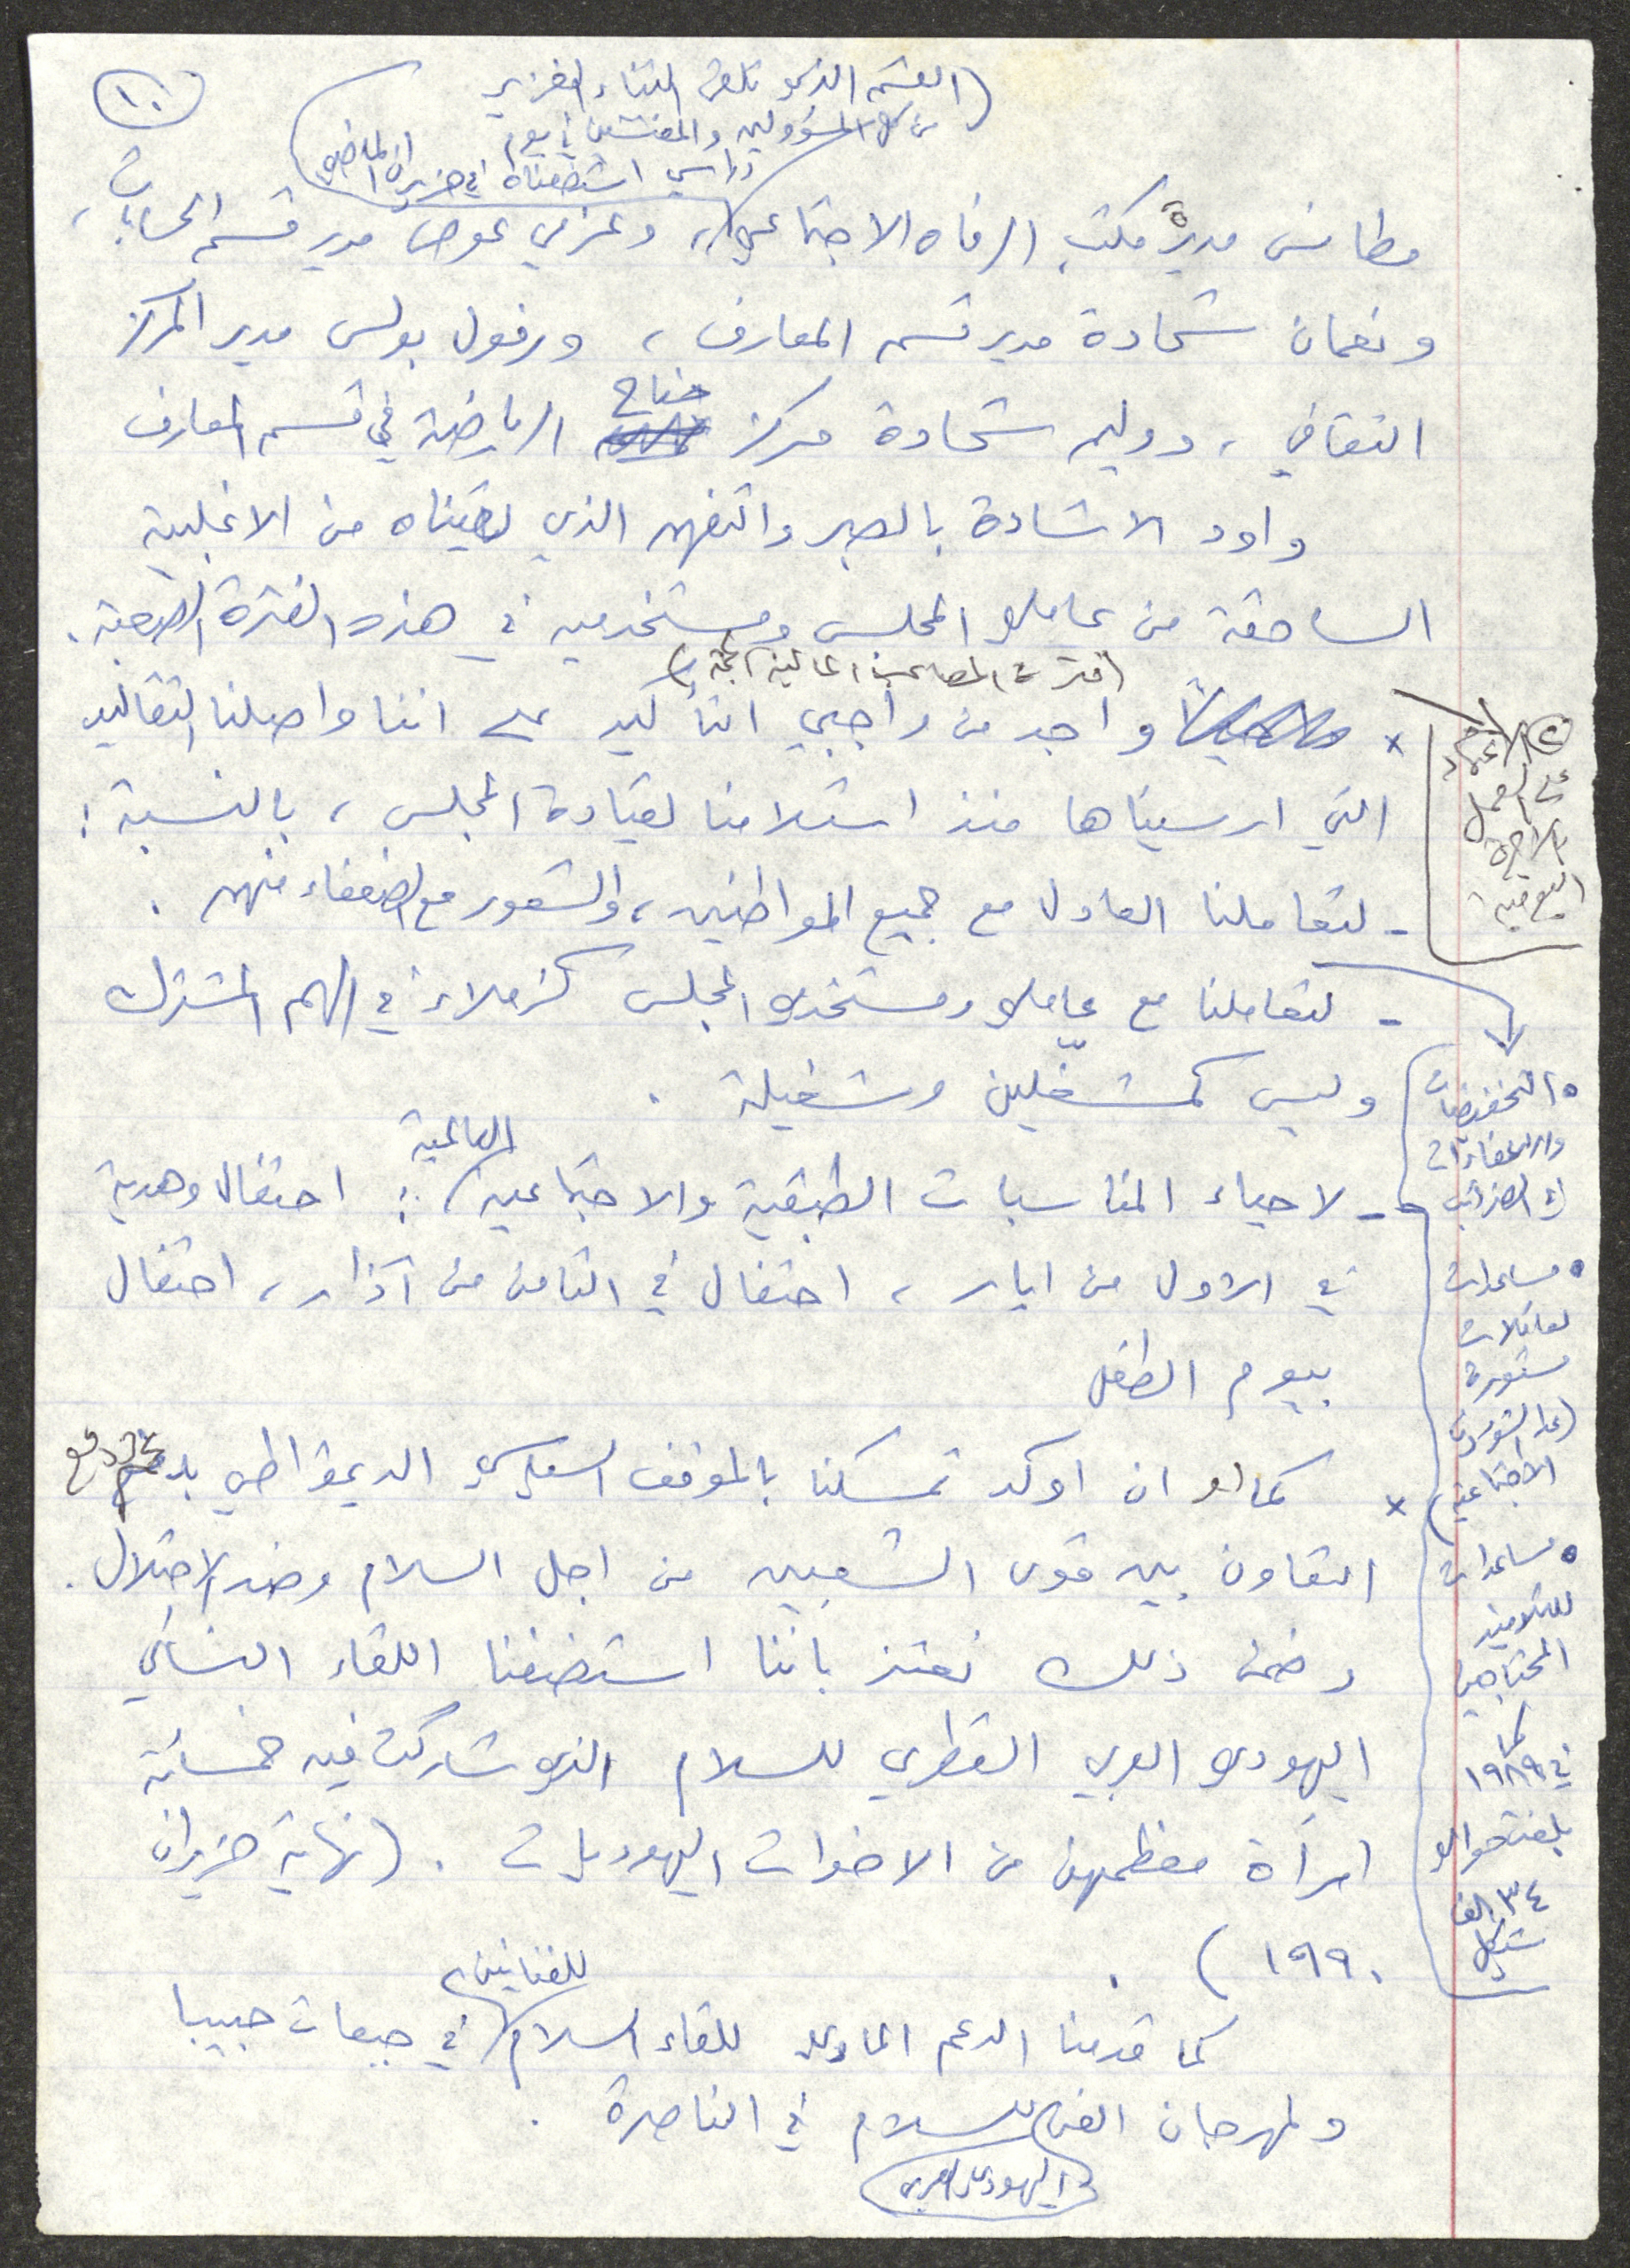 ١٠
(القسم الذي تلقى الثناء الغزير
من كل المسؤولين والمفتشين في يوم
دراسي استضفناه في حزيران الماضي)
مطانس مديرة مكتب الرفاه الاجتماعي، وعزمي عوض مدير قسم الحسابات،
ونعمان شحادة مدير قسم المعارف، ورفول بولس مدير المركز
الثقافي، ووليم شحادة مركز جناح الرياضة في قسم المعارف
واود الاشادة بالصبر والتفهم الذي لقيناه من الاغلبية
الساحقة من عاملي المجلس ومستخدميه في هذه الفترة الصعبة.
(فترة المصاعب المالية الجمة)
× واجد من واجبي التأكيد على اننا واصلنا التقاليد
التي ارسيناها منذ استلامنا لقيادة المجلس، بالنسبة:
- لتعاملنا العادل مع جميع المواطنين، والشعور مع الضعفاء منهم.
- لتعاملنا مع عاملي ومستخدمي المجلس كزملاء في الهم المشترك
وليس كمشغّلين وشغيلة.
- لاحياء المناسبات الطبقية والاجتماعية العالمية: احتفال وهدية
في الاول من ايار، احتفال في الثامن من آذار، احتفال
بيوم الطفل
× كما لو ان اوكد تمسكنا بالموقف السياسي الديمقراطي
التعاون بين قوى الشعبين من اجل السلام وضد الاحتلال.
وضمن ذلك نعتز باننا استضفنا اللقاء النسائي
اليهودي العربي القطري للسلام الذي شاركت فيه خمسمائة
امرأة معظمهن من الاخوات اليهوديات. (نهاية حزيران
١٩٩٠).
كما قدمنا الدعم المادي للقاء السلام للفنانين في جبعات حبيبا
ولمهرجان الفن للسلام في الناصرة.
اليهودي العربي
الاعتماد
على العمل
بالاجرة
اليومية
• التخفيضات
والاعفاءات
في الضرائب
• مساعدات
لعائلات
مستورة
(عدا الشؤون
الاجتماعية)
• مساعدات
للتلاميذ
المحتاجين
كما
في ١٩٨٩
بلغت حوالي
٣٤ الف
شيكل